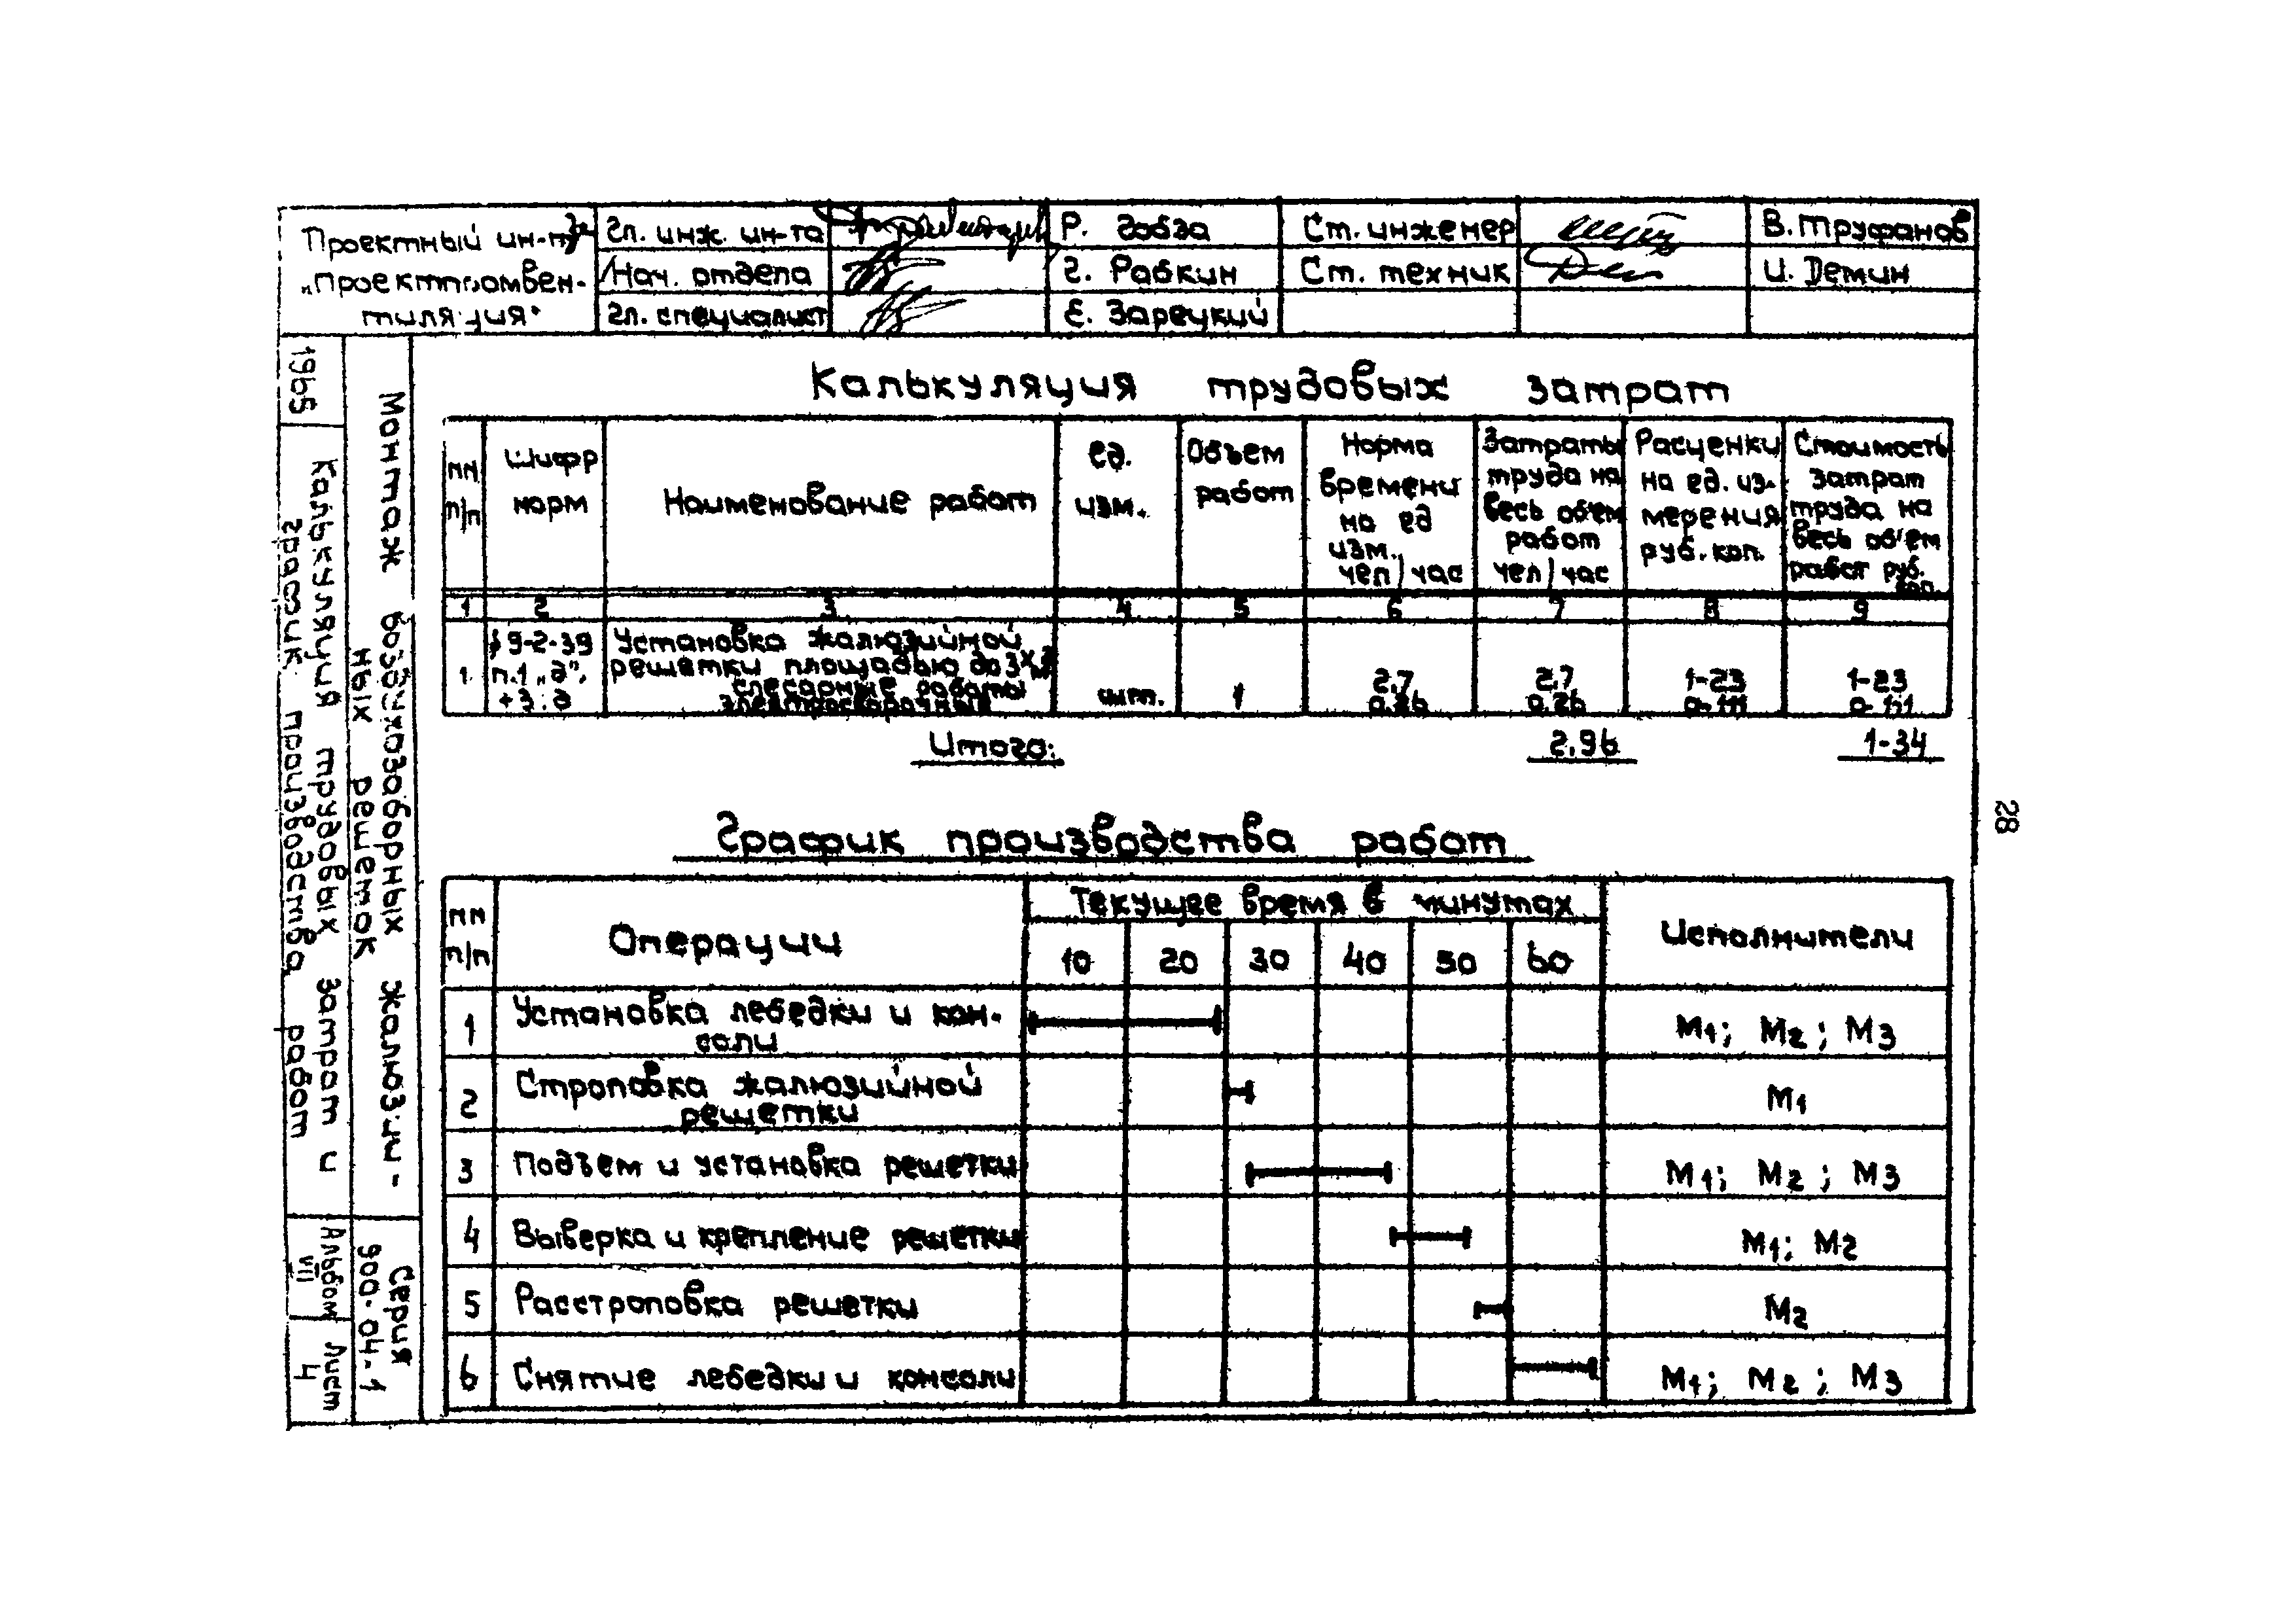 Проектный ин-т Гл. инж. ин-та Р. Гобза Ст. инженер В. Труфанов
„Проектпромвен- Нач. отдела Г. Рабкин Ст. техник И. Демин
тиляция“ Гл. специалист Е. Зарецкий
Калькуляция трудовых затрат
пп п/п
Шифр норм
Наименование работ
ед. изм.
Объем работ
Норма времени на ед изм. чел/час
Затраты труда на весь об'ем работ чел/час
Расценки на ед. из- мерения руб. коп.
Стоимость затрат труда на весь об'ем работ руб. коп.
1 2 3 4 5 6 7 8 9
1. §9-2-39 п.1 „д“, +3:д
Установка жалюзийной
решетки площадью до 3
слесарные работы
электросварочные
шт. 1
2,7 2,7 1-23 1-23
0.26 0.26 0-11 0-11
Итого: 2.96 1-34
График производства работ
пп п/п
Операции
Текущее время в минутах
10 20 30 40 50 60
Исполнители
1 Установка лебедки и кон-
соли М1; М2; М3
2 Строповка жалюзийной
решетки М1
3 Подъем и установка решетки М1; М2; М3
4 Выверка и крепление решетки М1; М2
5 Расстроповка решетки М2
6 Снятие лебедки и консоли М1; М2; М3
1965
Монтаж воздухозаборных жалюзий-
ных решеток
Калькуляция трудовых затрат и
график производства работ
Серия
900-04-1
Альбом
VII
Лист
4
28